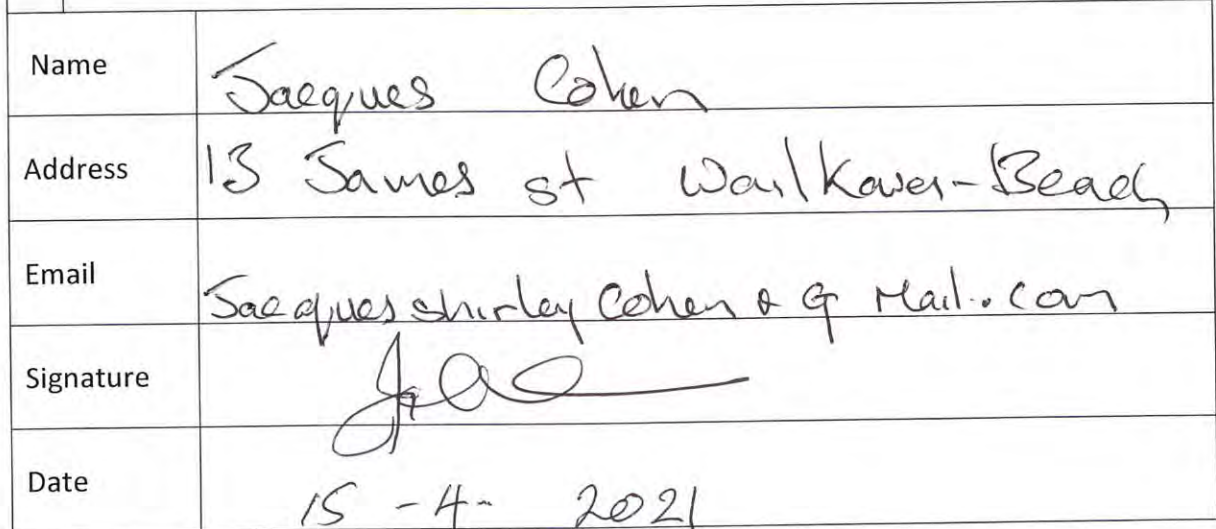 Name Jacques Cohen
Address 13 James st Beach
Email Jacques shirley Cohen @ G Mail.com
Signature
Date 15-4-2021